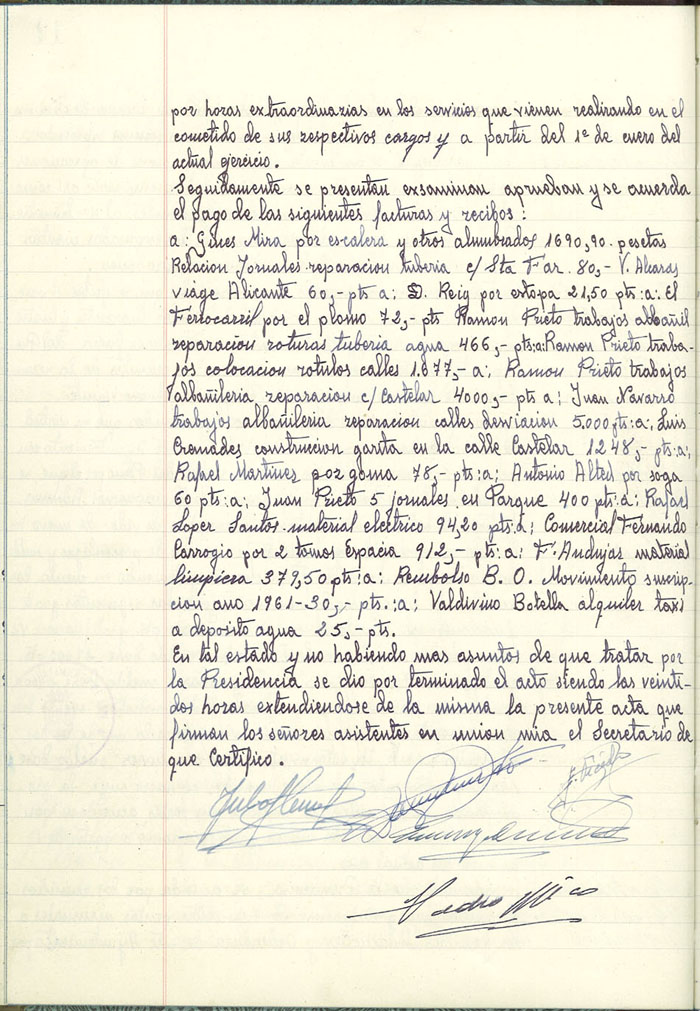 por horas extraordinarias en los servicios que vienen realizando en el
cometido de sus respectivos cargos y a partir del 1º de enero del
actual ejercicio.
Seguidamente se presentan exsaminan aprueban y se acuerda
el pago de las siguientes facturas y recibos:
a: Gines Mira por escalera y otros alumbrados 1690,90. pesetas
Relacion Jornales reparacion tuberia c/ Sta Far. 80,- V. Alcaras
viage Alicante 60,- pts a: D. Reig por estopa 21,50 pts:a: El
Ferrocarril por el plomo 72,- pts Ramon Prieto trabajos albañil
reparacion roturas tuberia agua 466,- pts:a: Ramon Prieto traba-
jos colocacion rotulos calles 1.877,- a: Ramon Prieto trabajos
albañileria reparacion c/ Castelar 4000,- pts a: Juan Navarro
trabajos albañileria reparacion calles desviacion 5.000 pts:a: Luis
Cremades construcion garita en la calle Castelar 1248,- pts:a:
Rafael Martinez por goma 78,- pts:a: Antonio Alted por soga
60 pts:a: Juan Prieto 5 jornales en Parque 400 pts:a: Rafael
Loper Santos material electrico 94,20 pts:a: Comercial Fernando
Carrogio por 2 tomos Espacia 912,- pts:a: F. Andujar material
limpieza 379,50 pts:a: Rembolso B. O. Movimiento suscrip-
cion ano 1961-30,- pts.:a: Valdivino Botella alquiler taxi
a deposito agua 25,- pts.
En tal estado y no habiendo mas asuntos de que tratar por
la Presidencia se dio por terminado el acto siendo las veinti-
dos horas extendiendose de la misma la presente acta que
firman los señores asistentes en union mia el Secretario de
que Certifico.
Pedro Mico